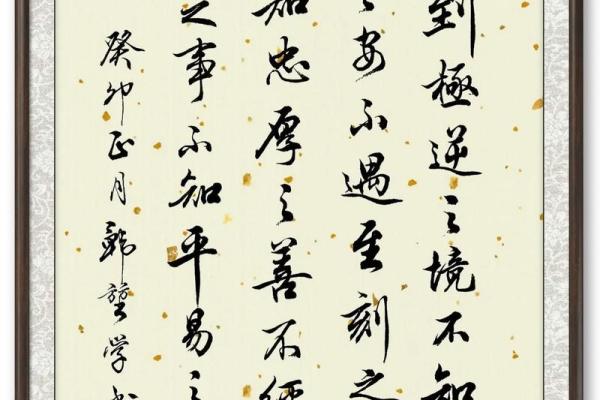 到極逆之境不知
之安不遇至刻之
知忠厚之善不經
之事不知平易之
癸卯正月韩学书